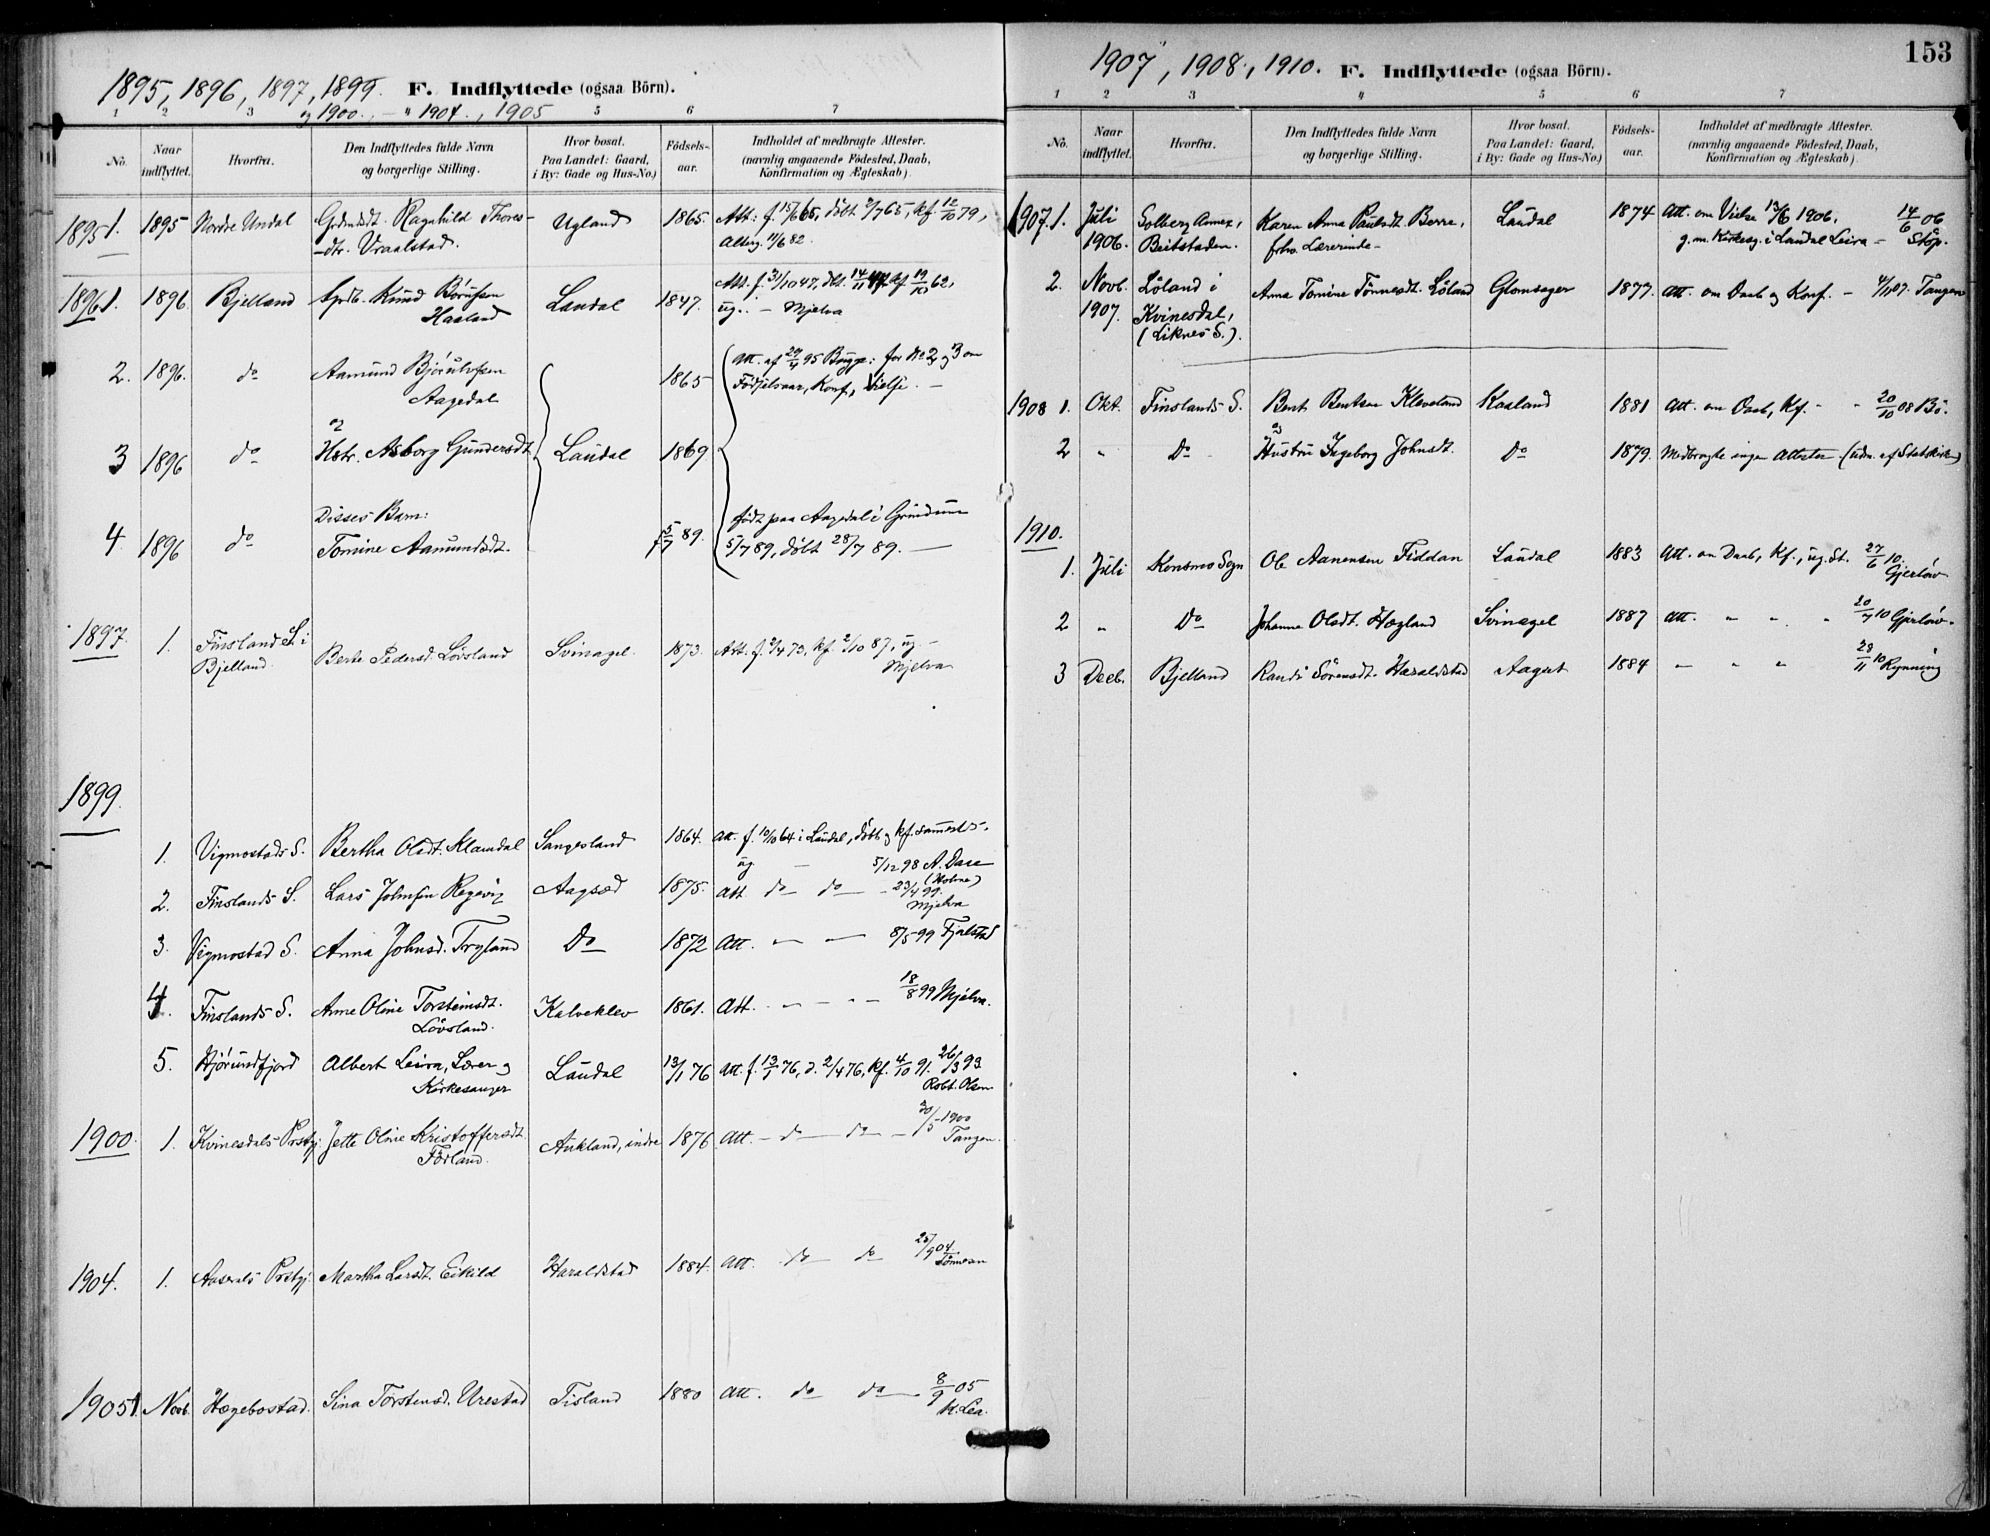 1895, 1896, 1897, 1899. F. Indflyttede (ogsaa Börn).
og 1900. – " 1904., 1905
1 2 3 5 6 7
No. Naar indflyttet. Hvorfra. Den Indflyttedes fulde Navn og borgerlige Stilling. Hvor bosat. Paa Landet: Gaard, i By: Gade og Hus-No.) Födsels-aar. Indholdet af medbragte Attester. (navnlig angaaende Födested, Daab, Konfirmation og Ægteskab)
1895 1. 1895 Nordre Undal Gdmdsdt. Ragnhild Thores- Ugland 1865. Att: f. 15/6 65, döbt 9/7 65, kf. 12/10 79,
-dtr. Vraalstad. 11/6 82.
1896 1. 1896. Bjelland Knud Laudal 1847. Att. f. 31/10 47, dbt. 14/11 47 kf 19/10 62,
Haaland ug.. – Mjelva
2. 1896. do Aamund Bjórulvsen 1865 Att. af 29/4 95 for No 2 og 3 om
Aagedal Födselsaar, Konf., Vielse. –
og
3 1896 do Hstr. Asborg Gundersdt. Laudal 1869
Disses Barn: födt paa Aagedal i Grindum
4. 1896 do Tomine Aamundsdt. f 5/7 89. 5/7 89, döbt 28/7 89. —
1897. 1. Finsland S. i
Bjelland. Berte Pedersd. Lövsland Svinagel. 1873. Att. f. 2/4 73, kf. 2/10 87, ug. –
Mjelva
1899.
1. Vigmostads S. Bertha Olsdt. Klamdal Sangesland 1864. Att. f. 10/10 64 i Laudal, döbt og kf. sammests.
ug – 5/12 98 A. Dase
(Holme)
2. Finslands S. Lars Johnsen Regevig Aagsæd 1875. Att. do do – 23/4 99.
Mjelva
3. Vigmostad S. Anna Johnsd. Trygland Do 1872 Att. – — 8/5 99 Fjalstad
4. Finslands S. Anne Oline Torsteinsdt. Kalveklev 1861. Att. – – – – 18/8 99 Mjelva.
Lövsland.
5. Hjörundfjord Albert Leira, Lærer og Laudal 13/1 76 Att. f. 13/1 76, d. 2/4 76, kf. 4/10 91. 26/3 93
Kirkesanger Robt. Olsen
1900. 1. Kvinesdals Prstgj. Jette Oline Kristoffersdt. Aukland, indre 1876 Att. – do — do – 30/5 1900
Förland. Tangen.
1904. 1. Aaserals Prstgj. Martha Larsdt. Eikild Haraldstad 1884. Att. do do 25/9 04
1905 1. Novb. Hægebostad. Sina Torstensd. Urestad Tisland 1880 Att. do do — 8/9 05
K. Lea.
1907, 1908., 1910. F. Indflyttede (ogsaa Börn). 153
1 2 3 4 5 6 7
No. Naar indflyttet. Hvorfra. Den Indflyttedes fulde Navn og borgerlige Stilling. Hvor bosat. Paa Landet: Gaard, i By: Gade og Hus-No.) Födsels-aar. Indholdet af medbragte Attester. (navnlig angaaende Födested, Daab, Konfirmation og Ægteskab)
1907. 1. Juli Solberg Annex, Karen Anna Paulsdt. Berre, Laudal 1874 Att. om Vielse 13/6 1906. 14/6 06
1906. Beitstaden. frhv. Lærerinde – g. m. Kirkesg. i Laudal Leira – Stöp.
2. Novb. Löland i Anna Tomine Tönnesdt. Löland Glomsager 1877. Att. om Daab og Konf. – 4/11 07. Tangen
1907. Kvinesdal,
(Liknes S.).
1908 1. Okt. Finslands S. Bent Bentsen Kleveland Kaaland 1881 Att. om Daab, Kf. – – 20/10 08 Bö.
og
2 " Do Hustru Ingeborg Johnsdt. Do 1879. Medbragte ingen Attester (udm. af Statskirken)
1910.
1. Juli Konsmo Sogn Ole Aanensen Fiddan Laudal 1883 Att. om Daab, Kf., ug. St. 27/6 10.
Gjerlöw
2 " Do Johanne Olsdt. Hægland Svinagel 1887 Att. " " " 20/7 10 Gjerlöw.
3 Decb. Bjelland Randi Sörensdt. Haraldstad Aagset 1884 " " " 28/11 10 Rynning